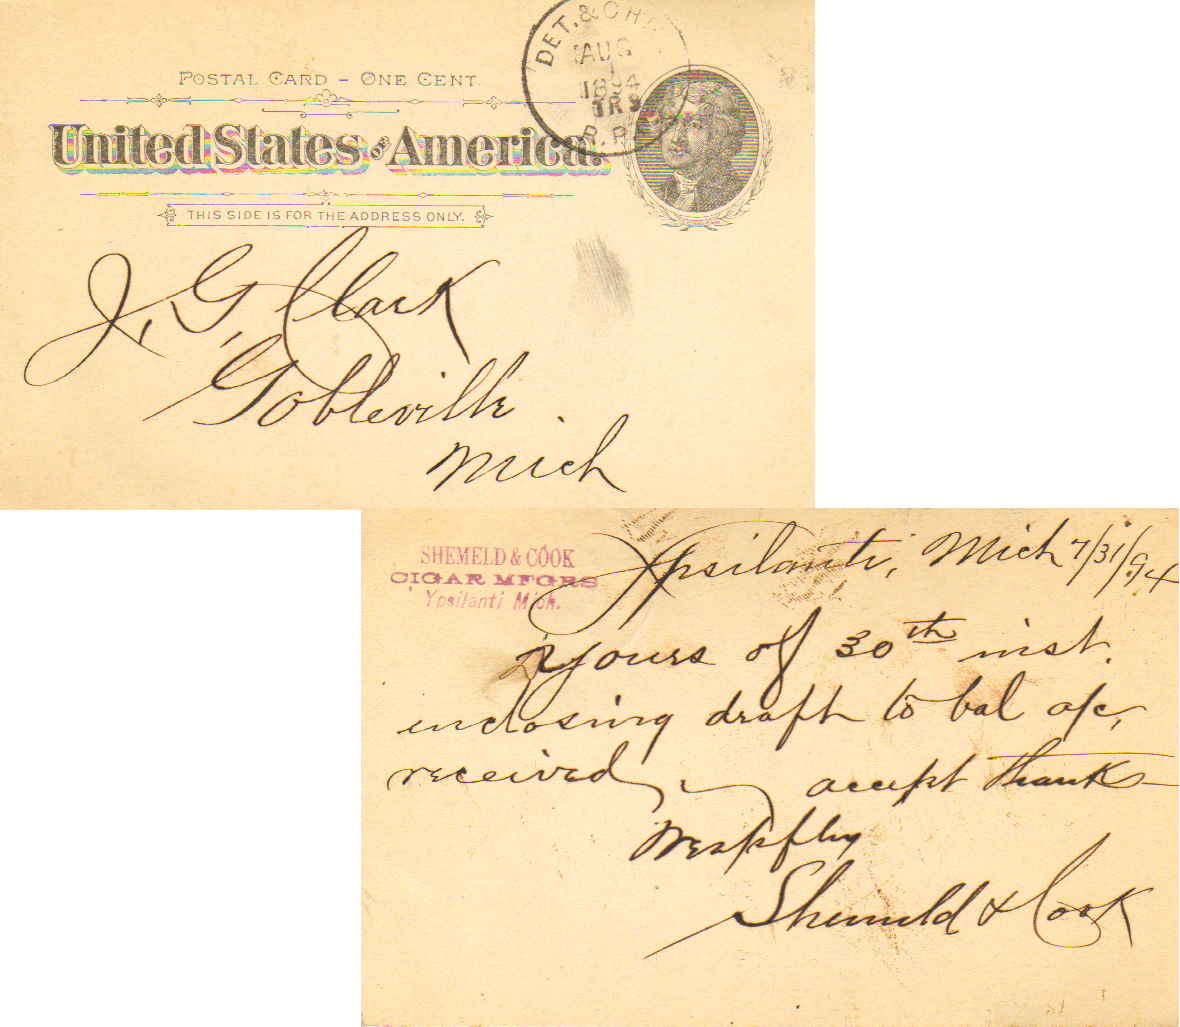 POSTAL CARD – ONE CENT.
United States OF America.
THIS SIDE IS FOR THE ADDRESS ONLY.
DET. & CHI
AUG
1
1894
TR 9
R.P.O.
J. G. Clark
Gobleville
Mich
SHEMELD & COOK
CIGAR MFGRS
Ypsilanti Mich.
Ypsilanti, Mich 7/31/94
Yours of 30th inst.
enclosing draft to bal a/c,
received, accept thanks
Respfly
Shemeld & Cook